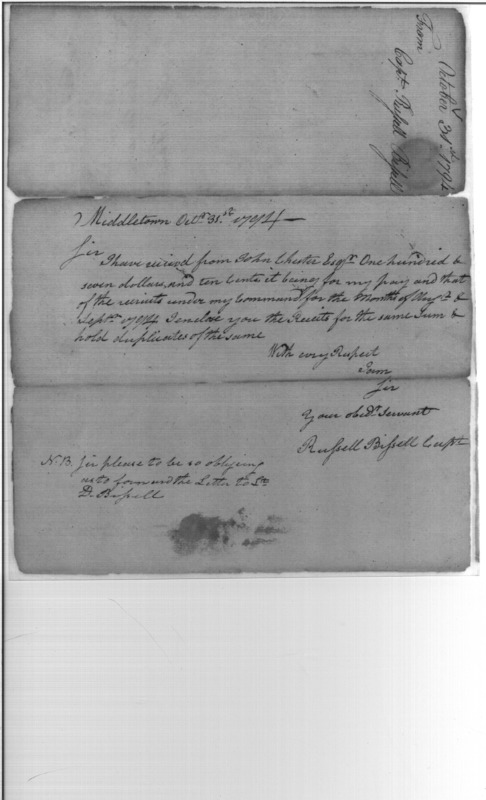 October 31st 1794
From
Capt. Russell Bissell
Middletown Octr. 31.st 1794
Sir
I have recieved from John Chester Esqr. One hundred &
seven dollars, and ten Cents it being for my pay and that
of the recruits under my Command for the Months of Augst. &
Septr. 1794 I enclose you the Receits for the same Sum &
hold duplicates of the same
With every Respect
I am
Sir
Your obedt. Servant
Russell Bissell Capt.
N.B. Sir please to be so obliging
as to forward the Letter to Lt.
D. Bissell